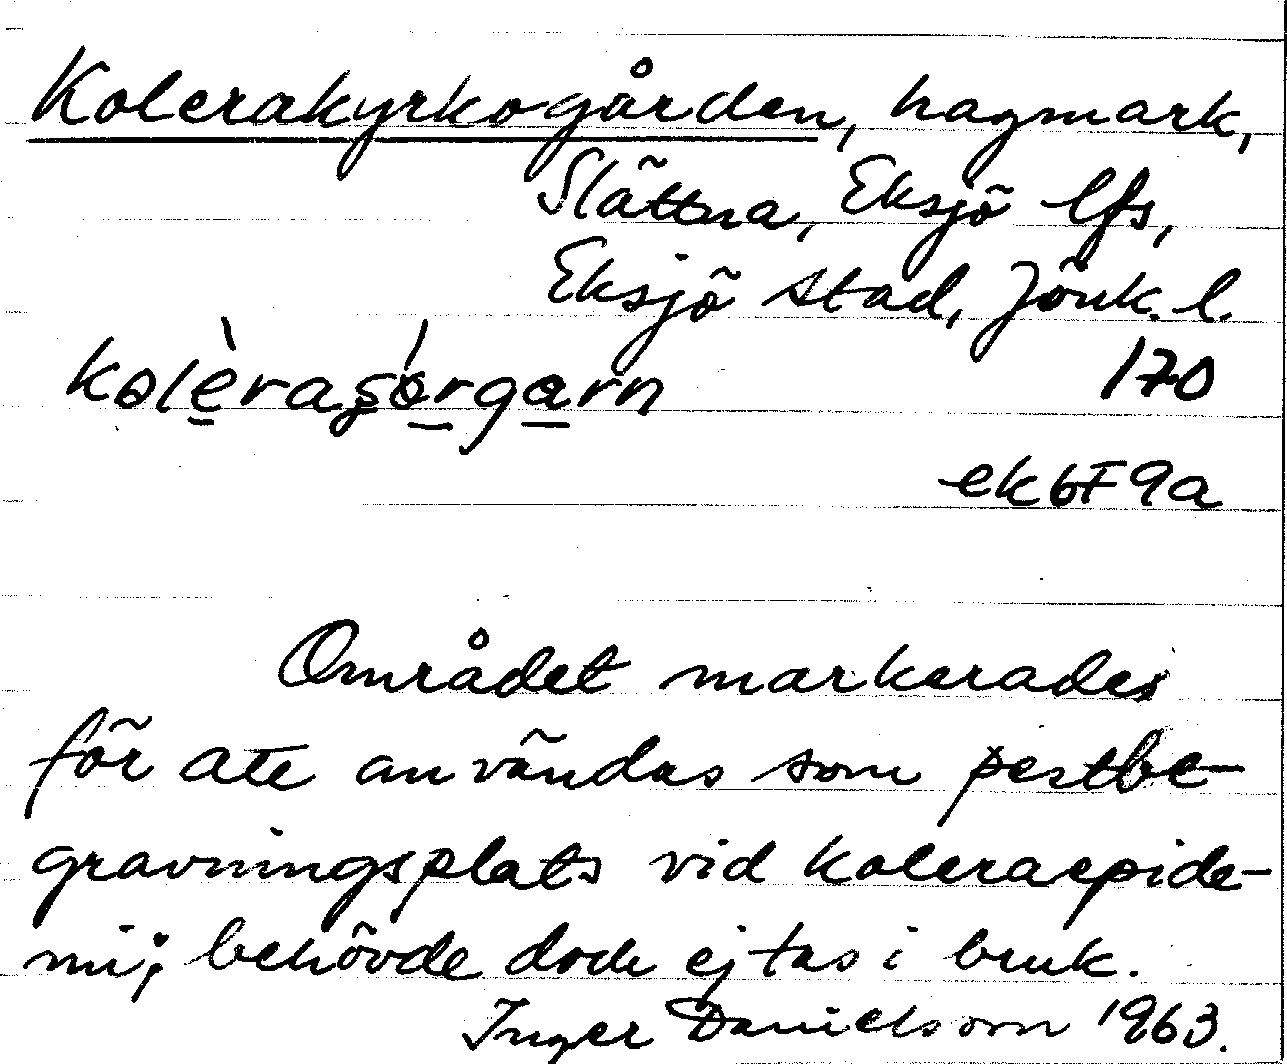 Kolerakyrkogården, hagmark,
Slättna, Eksjö lfs,
Eksjö stad, Jönk. l.
170
ek6F9a
Området markerades
för att användas som pestbe-
gravningsplats vid koleraepide-
mi; behövde dock ej tas i bruk.
Inger Danielsson 1963.